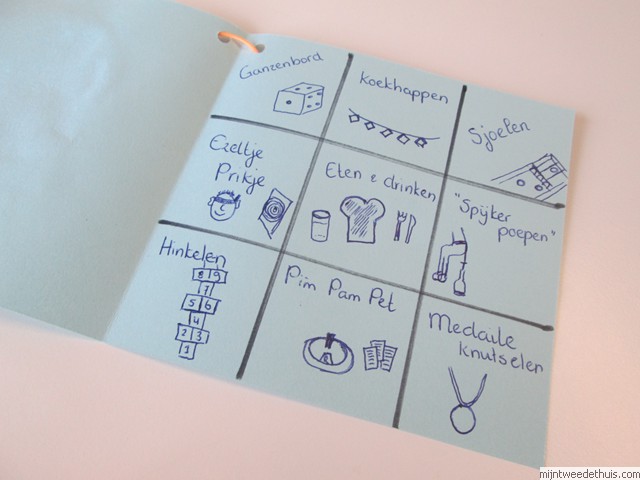 Ganzenbord
Koekhappen
Sjoelen
Ezeltje
Prikje
Eten & drinken
"Spijker
poepen"
Hinkelen
8 9
7
5 6
4
2 3
1
Pim Pam Pet
Medaile
knutselen
mijntweedethuis.com